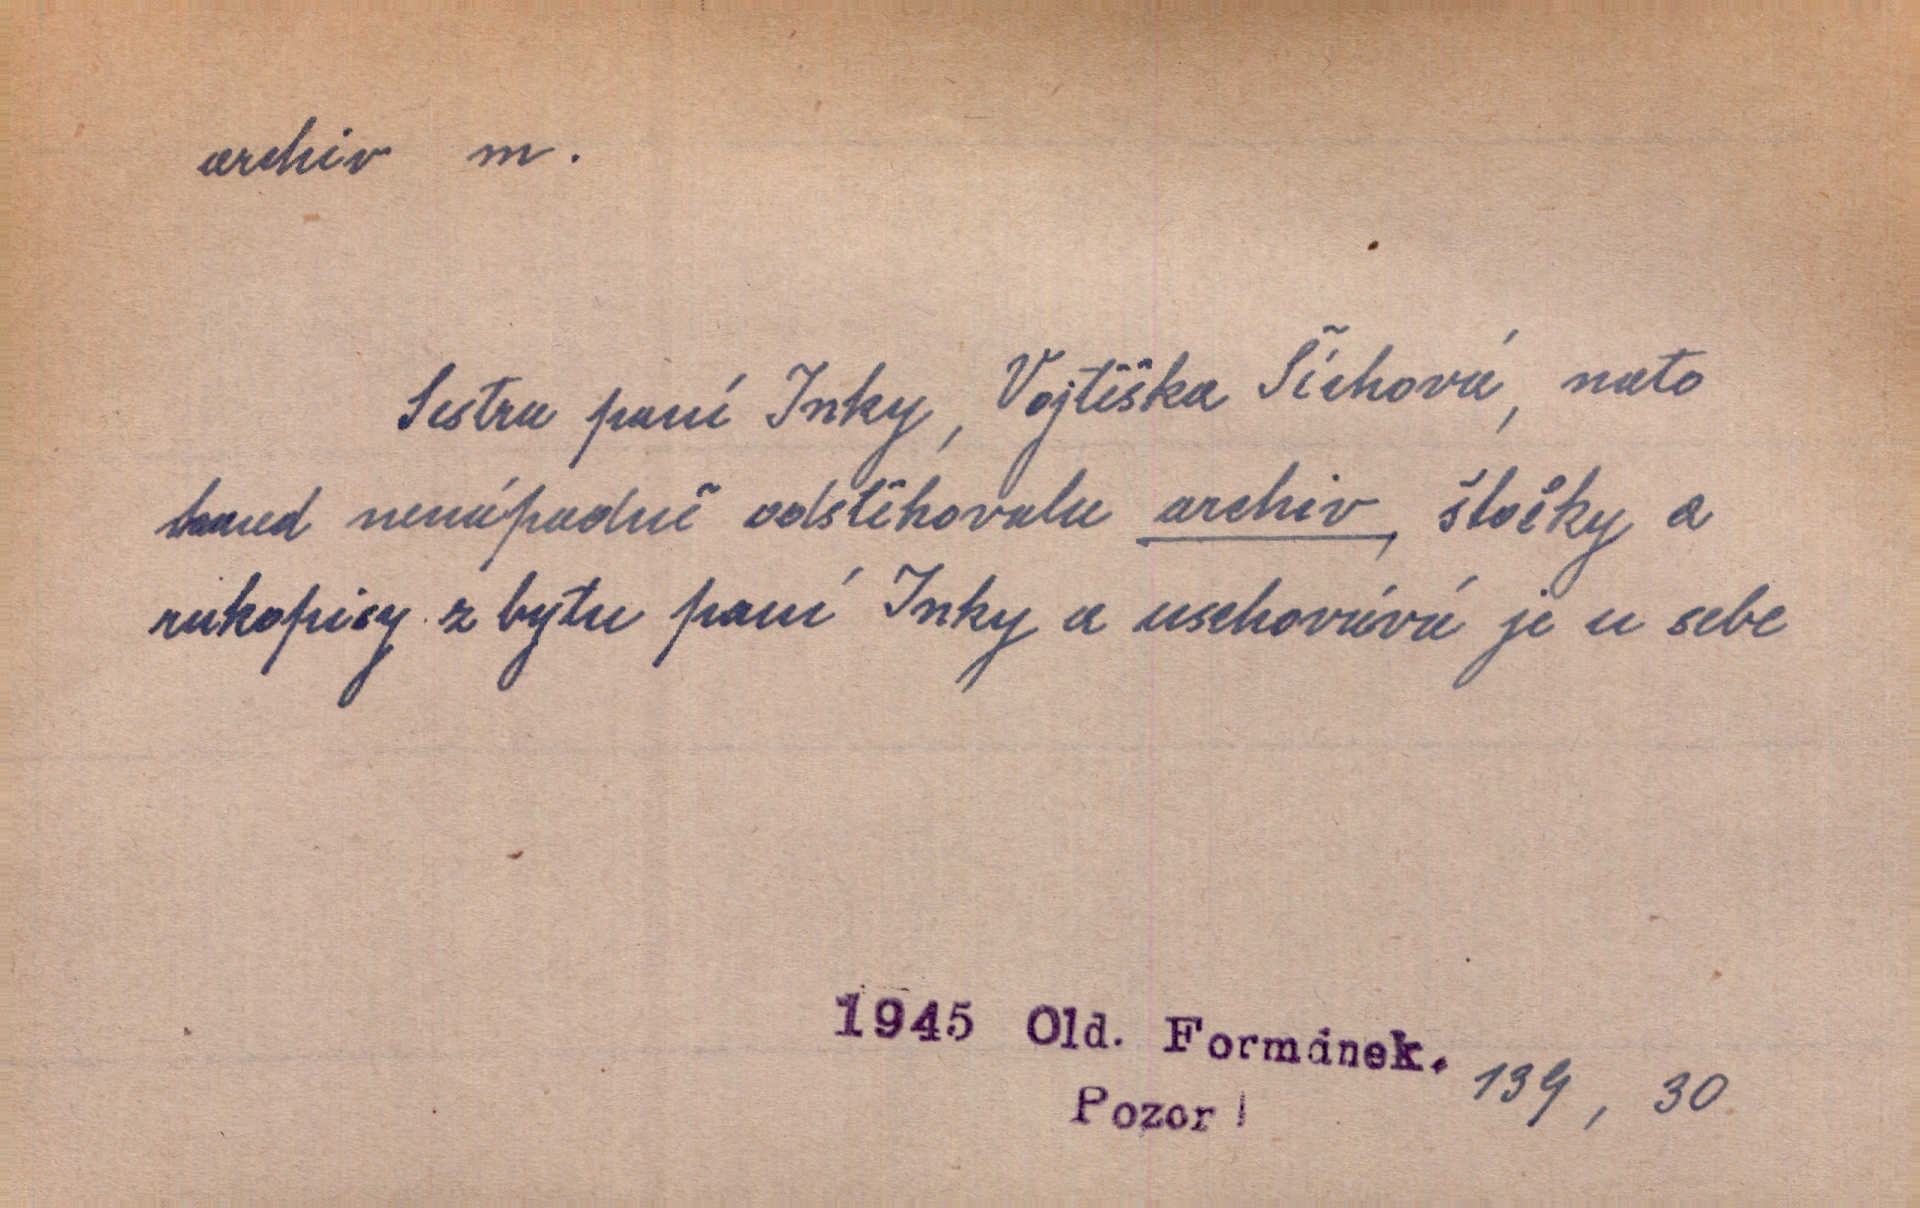 archiv m.
Sestra paní Inky, Vojtěška Šíchová, nato
hned nenápadně odstěhovala archiv, štočky a
rukopisy z bytu paní Inky a uschovává je u sebe
1945 Old. Formánek. 139, 30
Pozor!